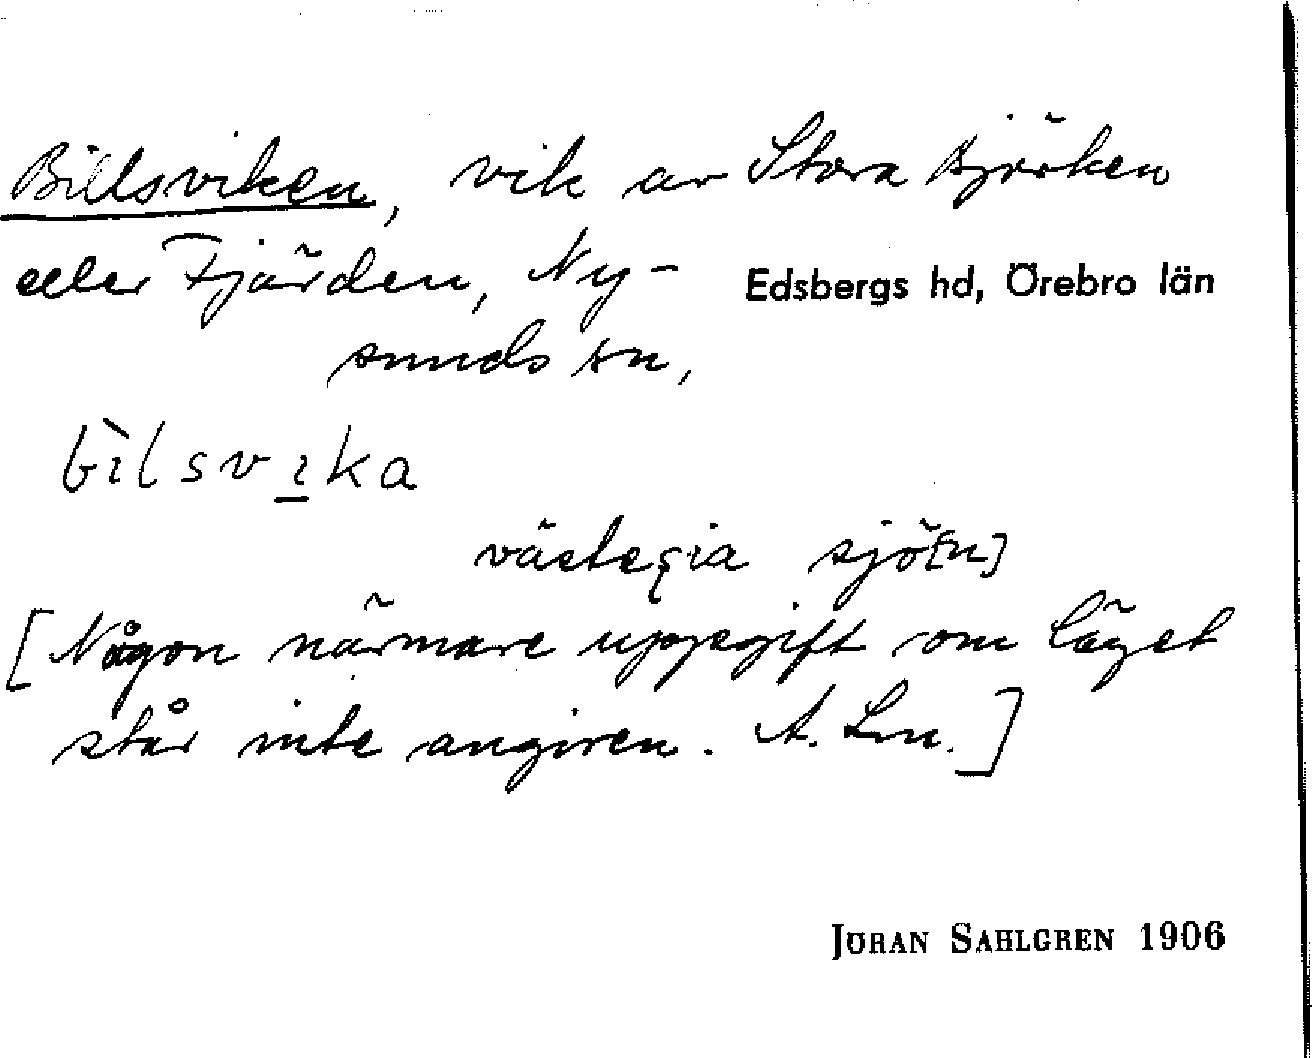 Billsviken, vik av Stora Björken
eller Fjärden, Ny- Edsbergs hd, Örebro län
sunds sn,
bìlsvıka
sjö[n]
[Någon närmare uppgift om läget
står inte angiven. A. Lm.]
JÖRAN SAHLGREN 1906